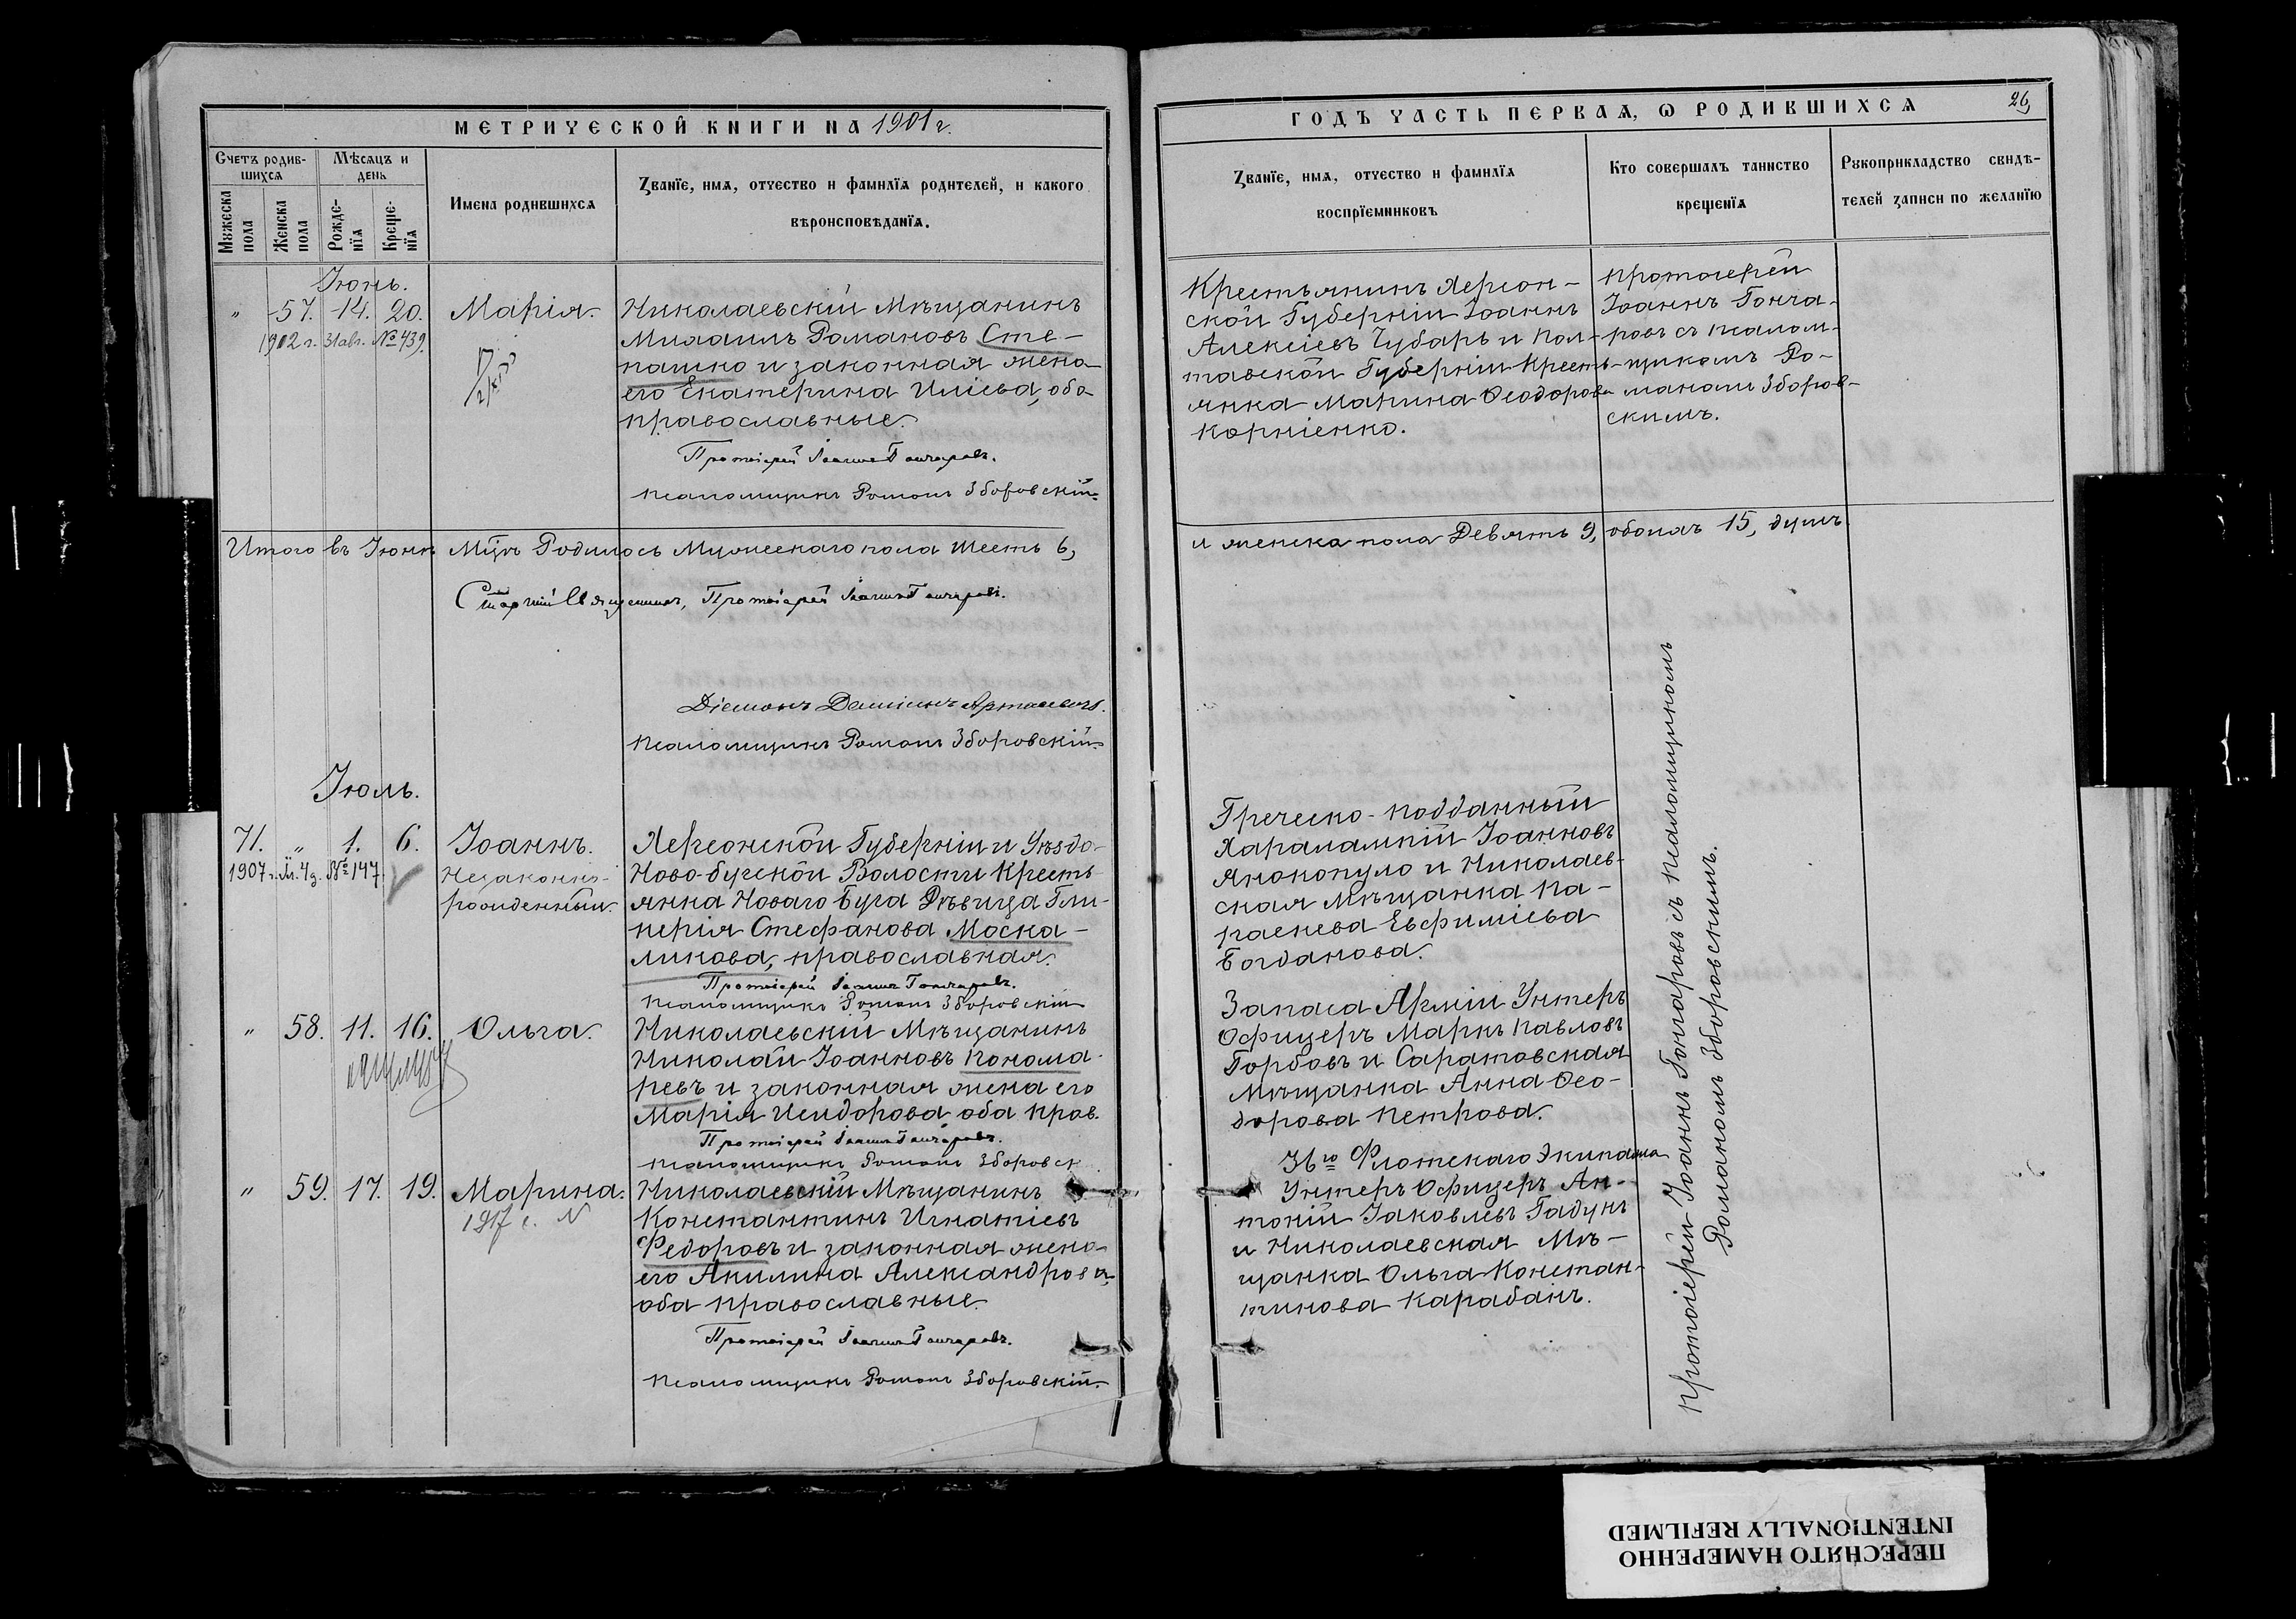 МЕТРИЧЕСКОЙ КНИГИ НА 1901 г.
Счетъ родив-
шихся
Мѣсяцъ и
день
Мужеска
пола
Женска
пола
Рожде-
нїя
Креще-
нїя
Имена родившихся
Званїе, имя, отчество и фамилїя родителей, и какого
вѣроисповѣданїя.
Іюнь.
" 57. 14. 20. Марія.
1902 г. 31 авг. № 439.
Николаевскій Мѣщанинъ
Михаилъ Романовъ Сте-
пашко и законная жена
его Екатерина Иліева, оба
православные.
Протоіерей Іоаннъ Гончаровъ.
Псаломщикъ Романъ Зборовскій.
Итого въ Іюнѣ Мцѣ Родилось Мужескаго пола шесть 6,
Старшій Священникъ, Протоіерей Іоаннъ Гончаровъ.
Діаконъ Даміанъ
Псаломщикъ Романъ Зборовскій
Іюль.
71. " 1. 6. Іоаннъ.
1907 г. № 147.
Незаконно-
рожденный.
Херсонской Губерніи и Уѣзда
Ново-бугской Волости Кресть-
янка Новаго Буга Дѣвица Гли-
керія Стефанова Моска-
ликова, православная.
Протоіерей Іоаннъ Гончаровъ.
Псаломщикъ Романъ Зборовскій
" 58. 11. 16. Ольга.
Николаевскій Мѣщанинъ
Николай Іоанновъ Понома-
ревъ и законная жена его
Марія Исидорова оба прав.
Протоіерей Іоаннъ Гончаровъ.
Псаломщикъ Романъ Зборовск
" 59. 17. 19. Марина.
1917 г. N
Николаевскій Мѣщанинъ
Константинъ Игнатіевъ
Федоровъ и законная жена
его Акилина Александрова,
оба православные.
Протоіерей Іоаннъ Гончаровъ.
Псаломщикъ Романъ Зборовскій.
ГОДЪ ЧАСТЬ ПЕРВАЯ, Ѡ РОДИВШИХСЯ
26
Званїе, имя, отчество и фамилїя
воспрїемниковъ
Кто совершалъ таинство
крещенїя
Рукоприкладство свидѣ-
телей записи по желанїю
Крестьянинъ Херсон-
ской Губерніи Іоаннъ
Алексіевъ Чубарь и Пол-
тавской Губерніи Кресть-
янка Марина Феодорова
Корніенко.
Протоіерей
Іоаннъ Гонча-
ровъ съ псалом-
щикомъ Ро-
маномъ Зборов-
скимъ.
и женска пола Девять 9, обоихъ 15, душъ.
Греческо-подданный
Харалампій Іоанновъ
Янокопуло и Николаев-
ская Мѣщанка Па-
раскева Евфиміева
Богданова.
Запаса Арміи Унтеръ
Офицеръ Маркъ Павловъ
Горбовъ и Саратовская
Мѣщанка Анна Фео-
дорова Петрова.
36го Флотскаго Экипажа
Унтеръ Офицеръ Ан-
тоній Іаковлевъ Гадунъ
и Николаевская Мѣ-
щанка Ольга Констан-
тинова Карабанъ.
Протоіерей Іоаннъ Гончаровъ съ псаломщикомъ
Романомъ Зборовскимъ.
ПЕРЕСНЯТО НАМЕРЕННО
INTENTIONALLY REFILMED